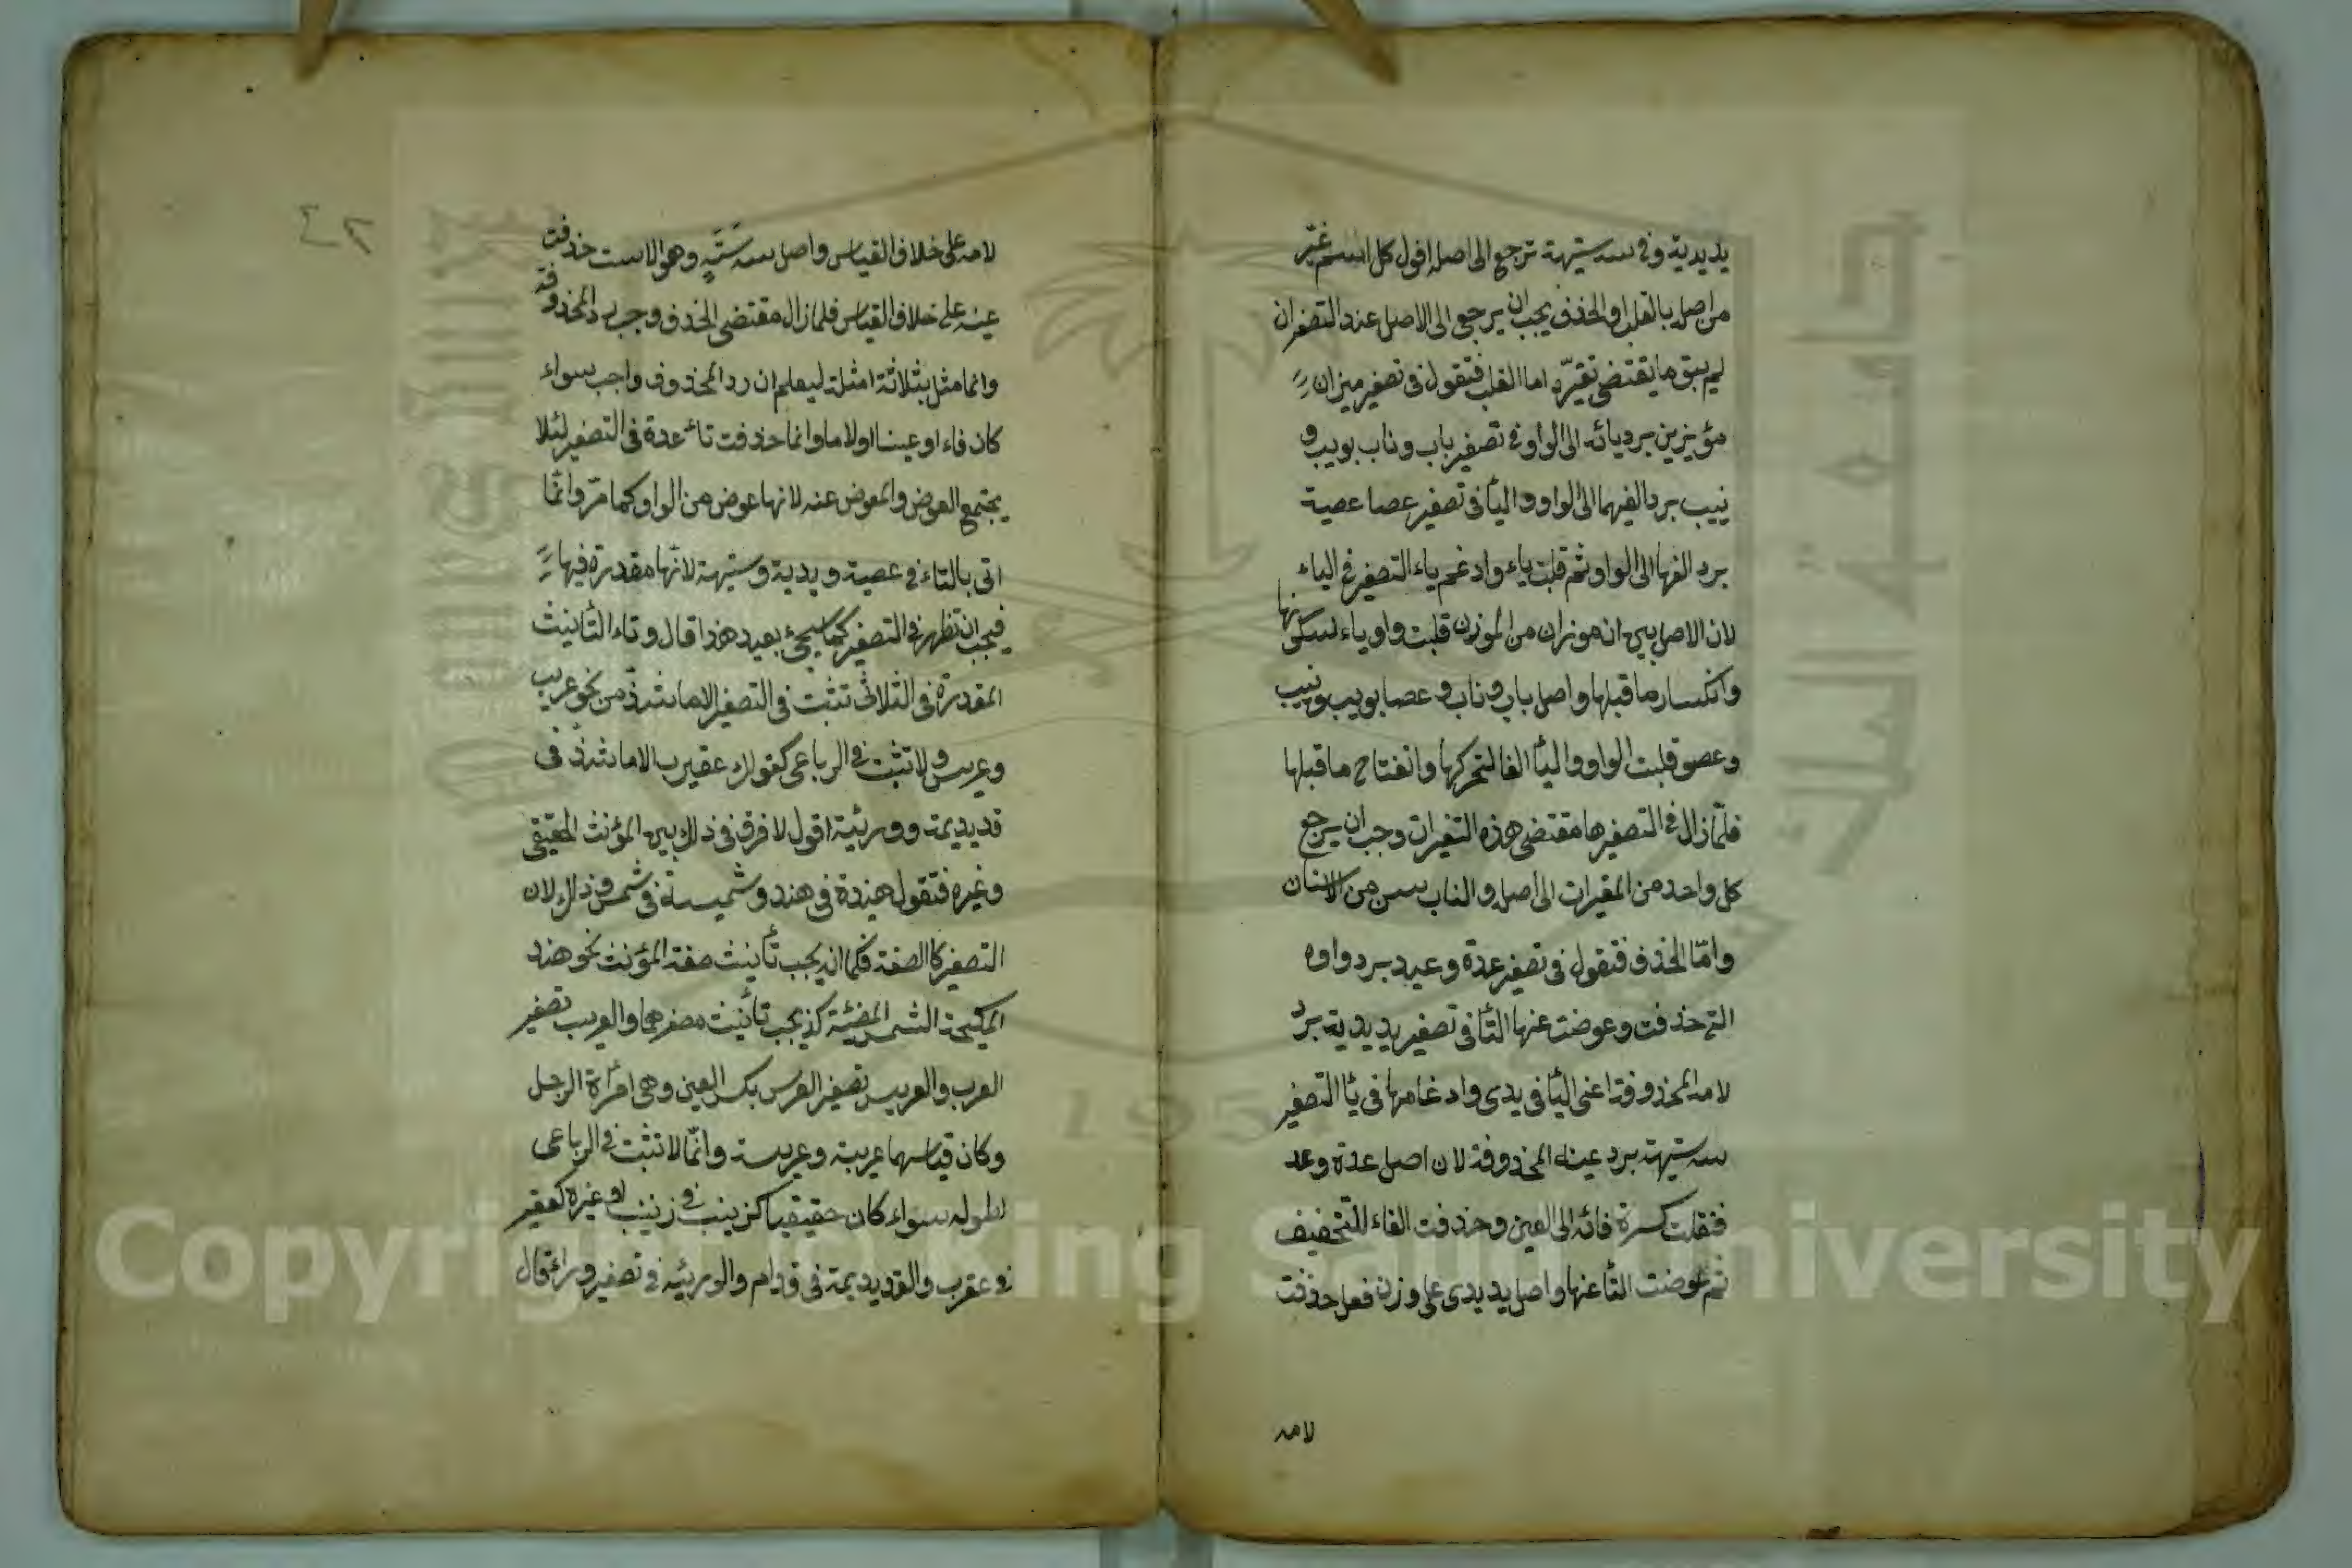 يد يدية وفى سه ستيهة ترجع الى اصله اقول كل اسم غير
من اصله بالقلب او الحذف يجب ان يرجع الى الاصل عند التصغير ان
لم يبق ما يقتضى تغيره اما القلب فتقول فى تصغير ميزان
مؤيزين برد يائه الى الواو وفى تصغير باب وناب بويب و
نييب برد الفيهما الى الواو والياء فى تصغير عصا عصية
برد الفها الى الواو ثم قلبت ياء وادغم ياء التصغير فى الياء
لان الاصل ميزان موزان من الوزن قلبت واوه ياء لسكونها
وانكسار ما قبلها واصل باب وناب وعصا بوب ونيب
وعصو قلبت الواو والياء الفا لتحركها وانفتاح ما قبلها
فلما زال فى التصغير ما مقتضى هذه التغيرات وجب ان يرجع
كل واحد من المغيرات الى اصله والناب سن من الاسنان
وامّا الحذف فتقول فى تصغير عدة وعيد برد واوه
التى حذفت وعوضت عنها التا فى تصغير يد يدية برد
لامه المحذوفة اعنى اليا فى يدى وادغامها فى يا التصغير
سه ستيهة برد عينه المحذوفة لان اصل عدة وعد
فنقلت كسرة فائه الى العين وحذفت الفاء للتخفيف
ثم عوضت التا عنها واصل يد يدى على وزن فعل حذفت
لامه
٤٢
لامه على خلاف القياس واصل سه سَتَهٍ وهو الاست حذفت
عينه على خلاف القياس فلما زال مقتضى الحذف وجب رد المحذوفة
وانما مثل بثلاثة امثلة ليعلم ان رد المحذوف واجب سواء
كان فاء او عينا او لاما وانما حذفت تاء عدة فى التصغير لئلا
يجتمع العوض والمعوض عنه لانها عوض من الواو كما مرّ وانّما
اتى بالتاء فى عصية ويدية وستيهة لانّها مقدرة فيها
فيجب ان تظهر فى التصغير كما سيجئ بعيد هذا قال وتاء التأنيث
المقدرة فى الثلاثى تثبت فى التصغير الا ما شذّ من نحو عريب
وعريس ولا تثبت فى الرباعى كقولك عقيرب الا ما شذّ فى
قديديمة ووريئية اقول لا فرق فى ذلك بين المؤنث الحقيقى
وغيره فتقول هنيدة فى هند وشميسة فى شمس وذلك لان
التصغير كالصفة فكما انه يجب تأنيث صفة المؤنث نحو هند
المليحة الشمس المضيئة كذ يجب تأنيث مصغرهما والعريب تصغير
العرب والعريس تصغير العرس بكسر العين وهى امرأة الرجل
وكان قياسهما عريبة وعريسة وانّما لا تثبت فى الرباعى
لطوله سواء كان حقيقيا كزيينب فى زينب او غيره كعقيرب
فى عقرب والقديديمة فى قدام والوريئية فى تصغير وراء قال